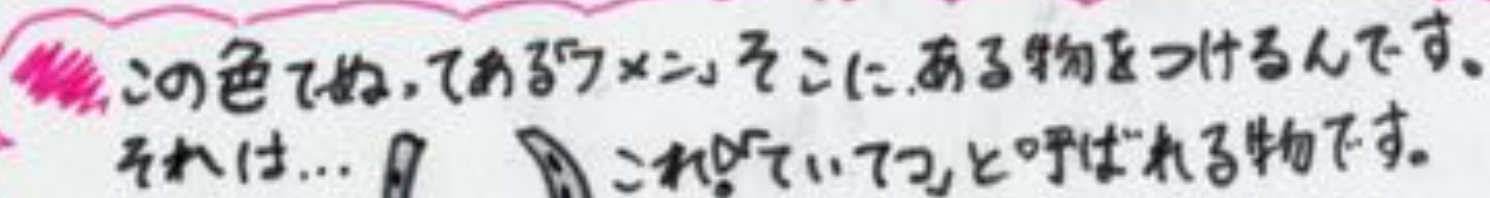 この色でぬってある「フメン」そこに、ある物をつけるんです。
それは… これ!「ていてつ」と呼ばれる物です。